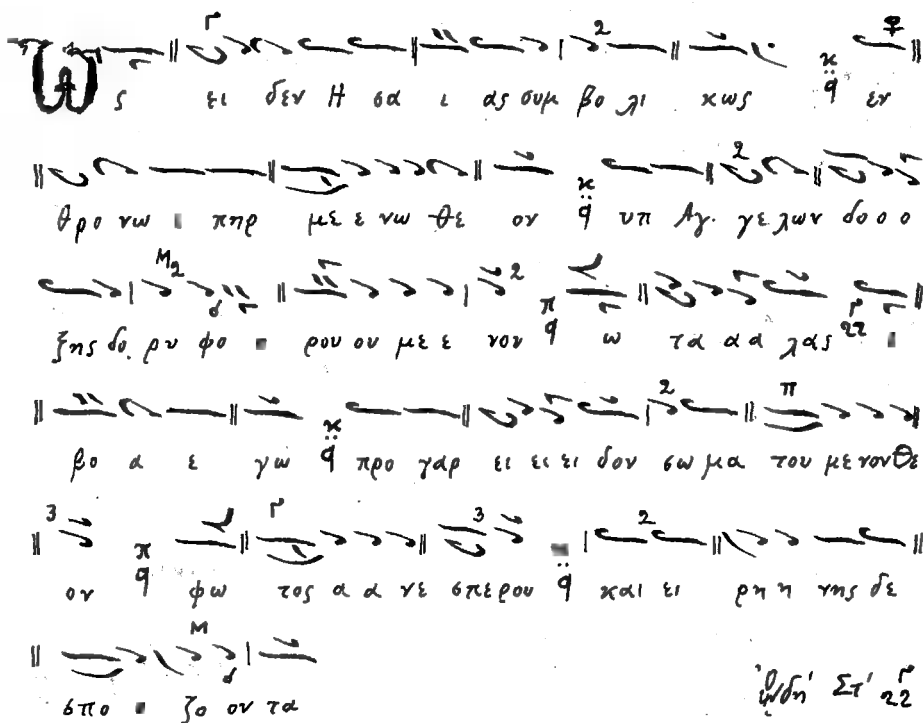 Ως ει δεν Η σα ι ας συμ βο λι κως εν
θρο νω πηρ με ε νω θε ον υπ Αγ. γε λων δο ο ο
ξης δο. ρυ φο ρου ου με ε νον ω τα α α λας
βο α ε γω προ γαρ ει ει ει δον σω μα του με νον Θε
ον φω τος α α νε σπερου και ει ρη η νης δε
σπο ζο ον τα
Ωδη' Στ'